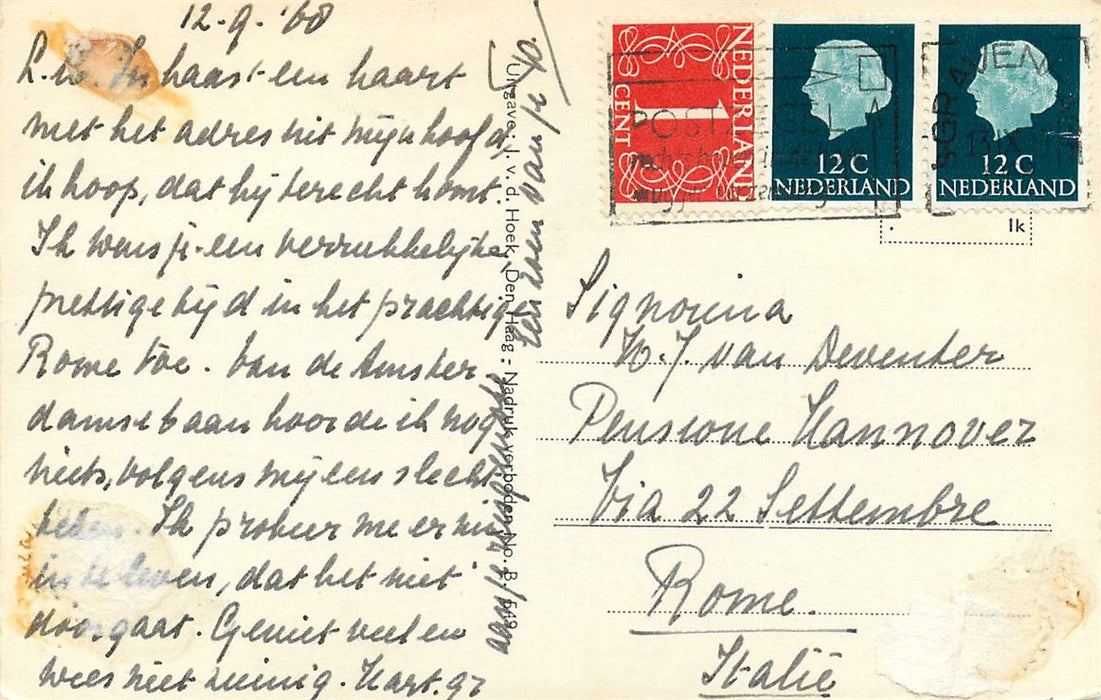 12-9-'68
L.W. In haast een kaart
met het adres uit mijn hoofd,
ik hoop, dat hij terecht komt.
Ik wens je een verrukkelijke
prettige tijd in het prachtige
Rome toe. Van de Amster-
damse baan hoorde ik nog
niets, volgens mij een slecht
teken. Ik probeer me er nu
in te leven, dat het niet
doorgaat. Geniet veel en
wees niet zuinig. Hart. gr
een zoen van je
Uitgave: J. v. d. Hoek, Den Haag. Nadruk verboden No. B.
NEDERLAND
1
CENT
12 C
NEDERLAND
12 C
NEDERLAND
POSTZEGEL
'S GRAVEN
13.IX
lk
Signorina
W.J. van Deventer
Pensione Hannover
Via 22 Settembre
Rome.
Italië